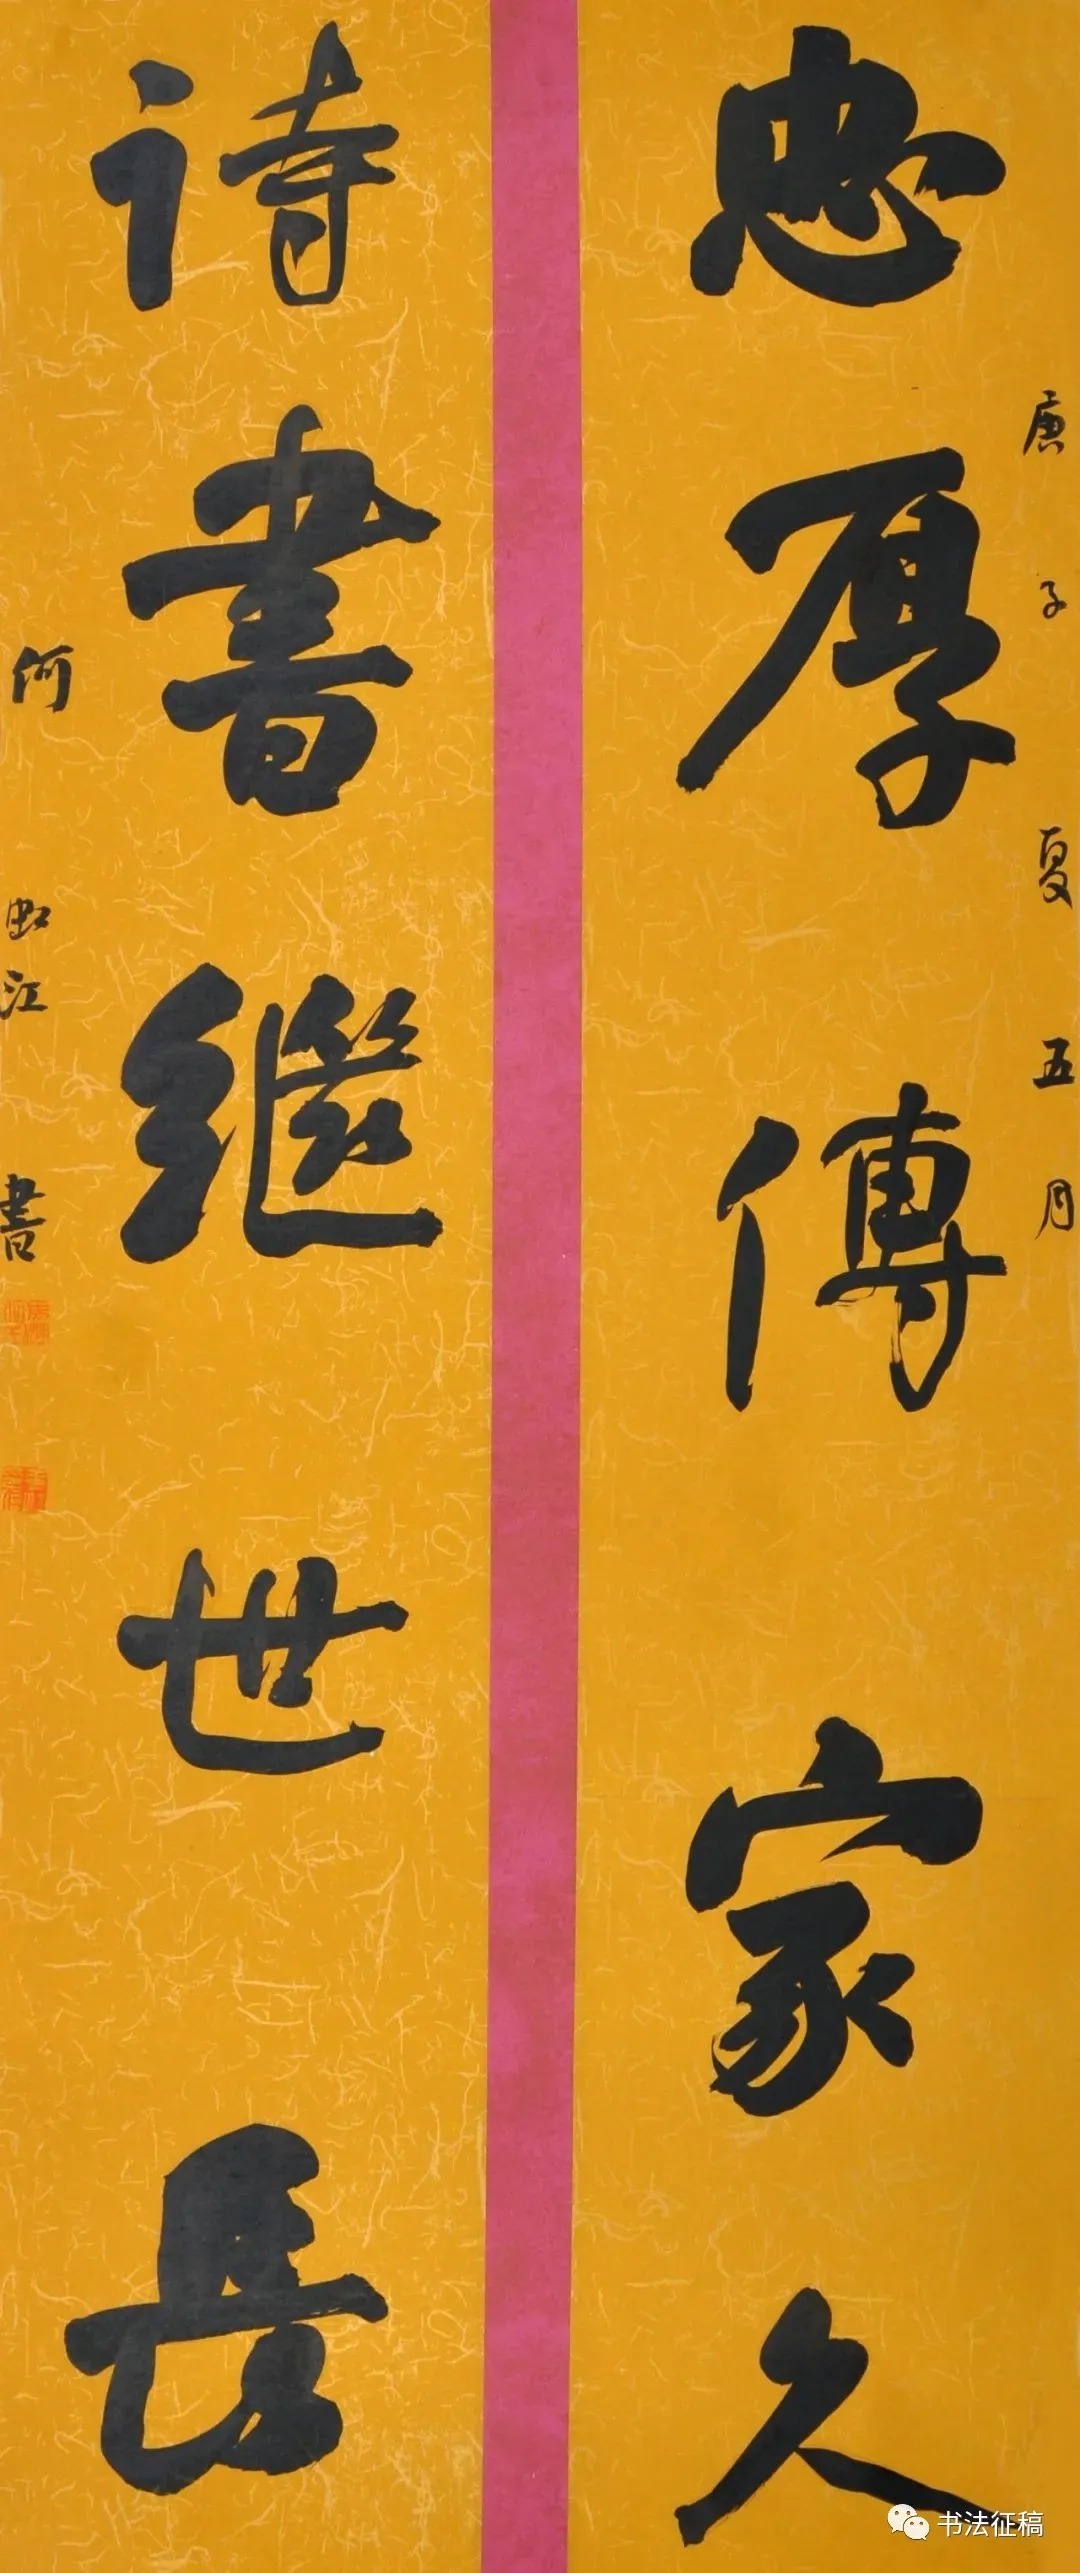 庚子夏五月
忠厚傳家久
詩書繼世長
何虹江書
书法征稿